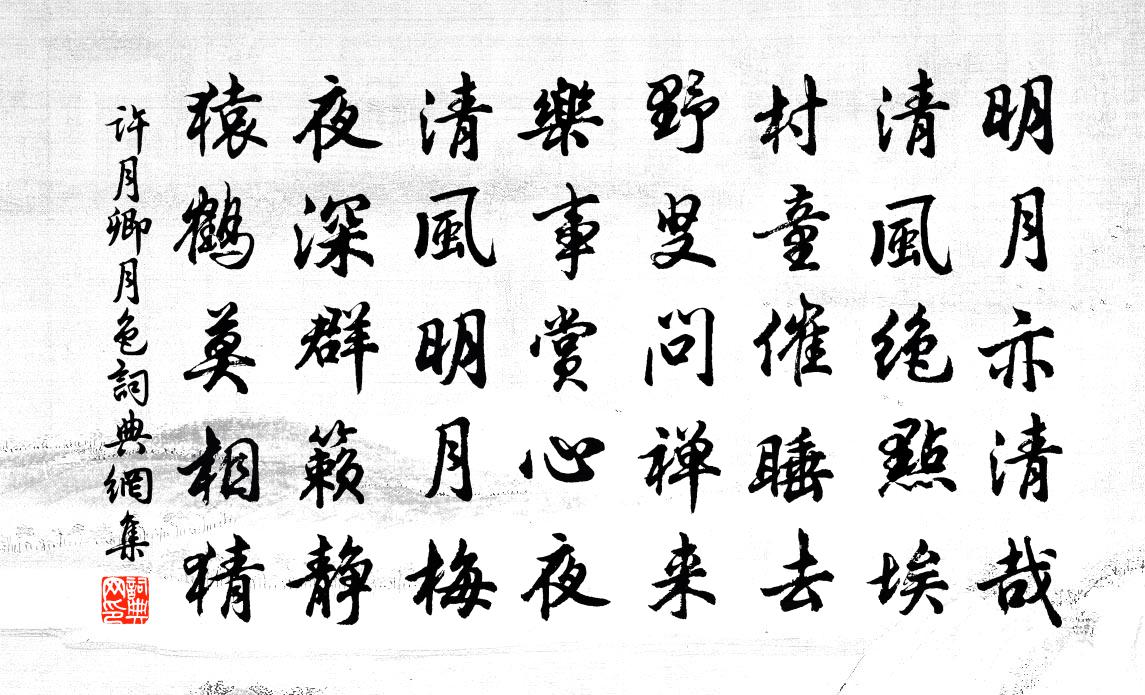 明月亦清哉
清風绝點埃
村童催睡去
野叟问禅来
樂事赏心夜
清風明月梅
夜深群籁静
猿鶴莫相猜
许月卿月色詞典網集
詞典網印